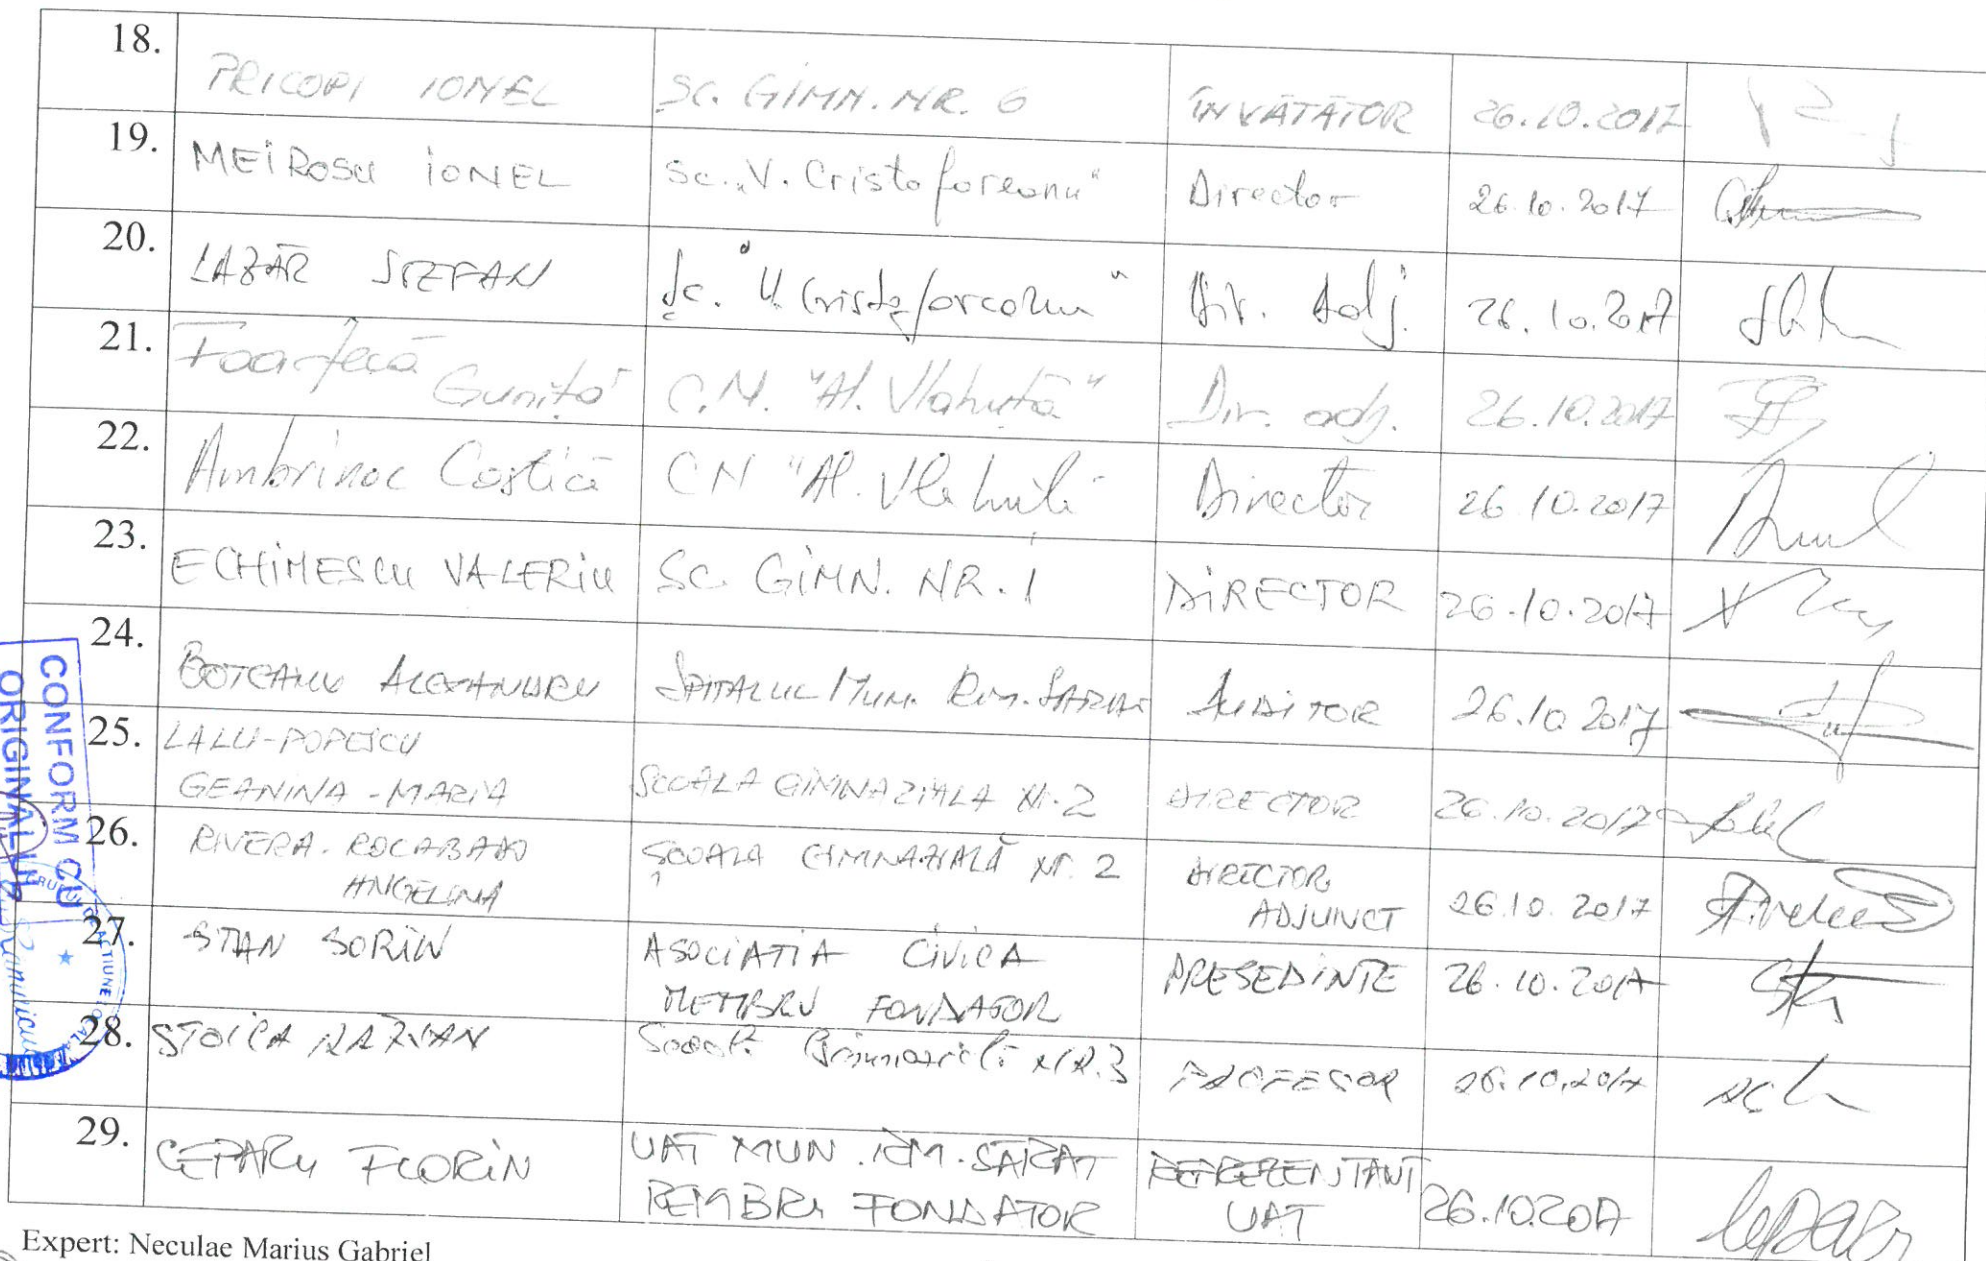 18. PRICOPI IONEL SC. GIMN. NR. 6 ÎNVĂTĂTOR 26.10.2017
19. MEIROSU IONEL Sc. „V. Cristoforeanu" Director 26.10.2017
20. LAZĂR STEFAN Șc. "V. Cristoforeanu" Dir. Adj. 26.10.2017
21. Foarfecă
Guniță C.N. "Al. Vlahuță" Dir. adj. 26.10.2017
22. Ambrinoc Costică CN "Al. Vlahuță" Director 26.10.2017
23. ECHIMESCU VALERIU SC. GIMN. NR. 1 DIRECTOR 26.10.2017
24. BOTEANU ALEXANDRU SPITALUL MUN. RM. SARAT AUDITOR 26.10.2017
25. LALU-POPESCU
GEANINA-MARIA SCOALA GIMNAZIALA Nr. 2 DIRECTOR 26.10.2017
26. RIVERA-ROCABADO
ANGELINA ȘCOALA GIMNAZIALĂ Nr. 2 DIRECTOR
ADJUNCT 26.10.2017
27. STAN SORIN ASOCIATIA CIVICA
MEMBRU FONDATOR PRESEDINTE 26.10.2017
28. STOICA RAZVAN Scoala Gimnazială NR.3 PROFESOR 26.10.2017
29. CEPARU FLORIN UAT MUN. RM. SARAT
MEMBRU FONDATOR REPREZENTANT
UAT 26.10.2017
CONFORM CU
ORIGINALUL
Expert: Neculae Marius Gabriel